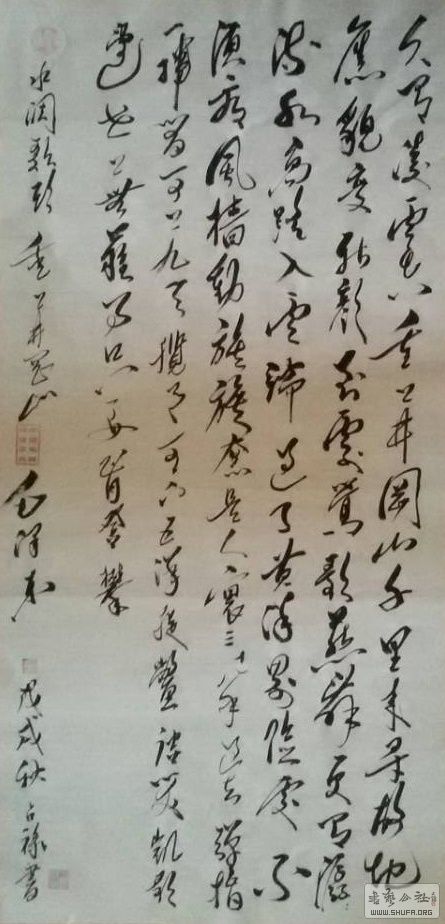 久有凌雲志重上井岡山千里来尋故地
舊貌變新顔到處鶯歌燕舞更有潺
流水高路入雲端過了黄洋界險處不
須看風檣動旌旗奮是人寰三十八年過去彈指
一揮間可上九天攬月可下五洋捉鱉談笑凱歌
還世上無難事只要肯登攀
水调歌頭 重上井岡山 毛澤東 戊戌秋 禄書
书艺公社
WWW.SHUFA.ORG